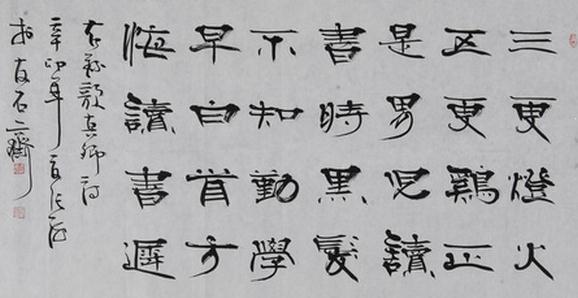 三更燈火
五更鷄正
是男兒讀
書時黑髮
不知勤學
早白首方
悔讀書遲
右錄顏真卿詩
辛卯年
友石齋